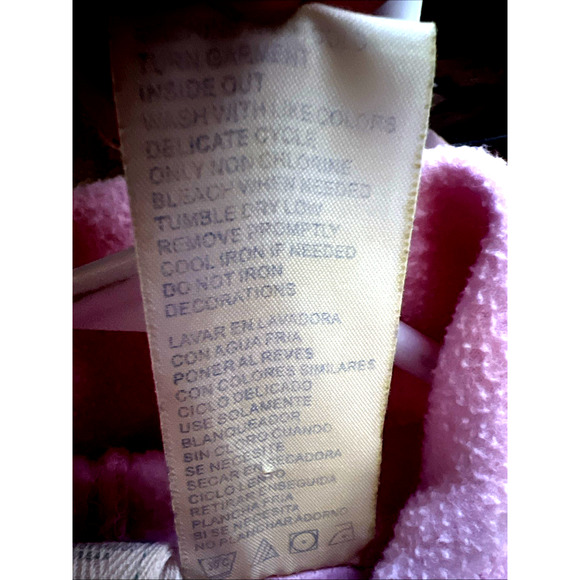 TURN GARMENT
INSIDE OUT
WASH WITH LIKE COLORS
DELICATE CYCLE
ONLY NON CHLORINE
BLEACH WHEN NEEDED
TUMBLE DRY LOW
REMOVE PROMPTLY
COOL IRON IF NEEDED
DO NOT IRON
DECORATIONS
LAVAR EN LAVADORA
CON AGUA FRIA
PONER AL REVES
CON COLORES SIMILARES
CICLO DELICADO
USE SOLAMENTE
BLANQUEADOR
SIN CLORO CUANDO
SE NECESITE
SECAR EN SECADORA
CICLO LENTO
RETIRAR ENSEGUIDA
PLANCHA FRIA
SI SE NECESITE
NO PLANCHAR ADORNO